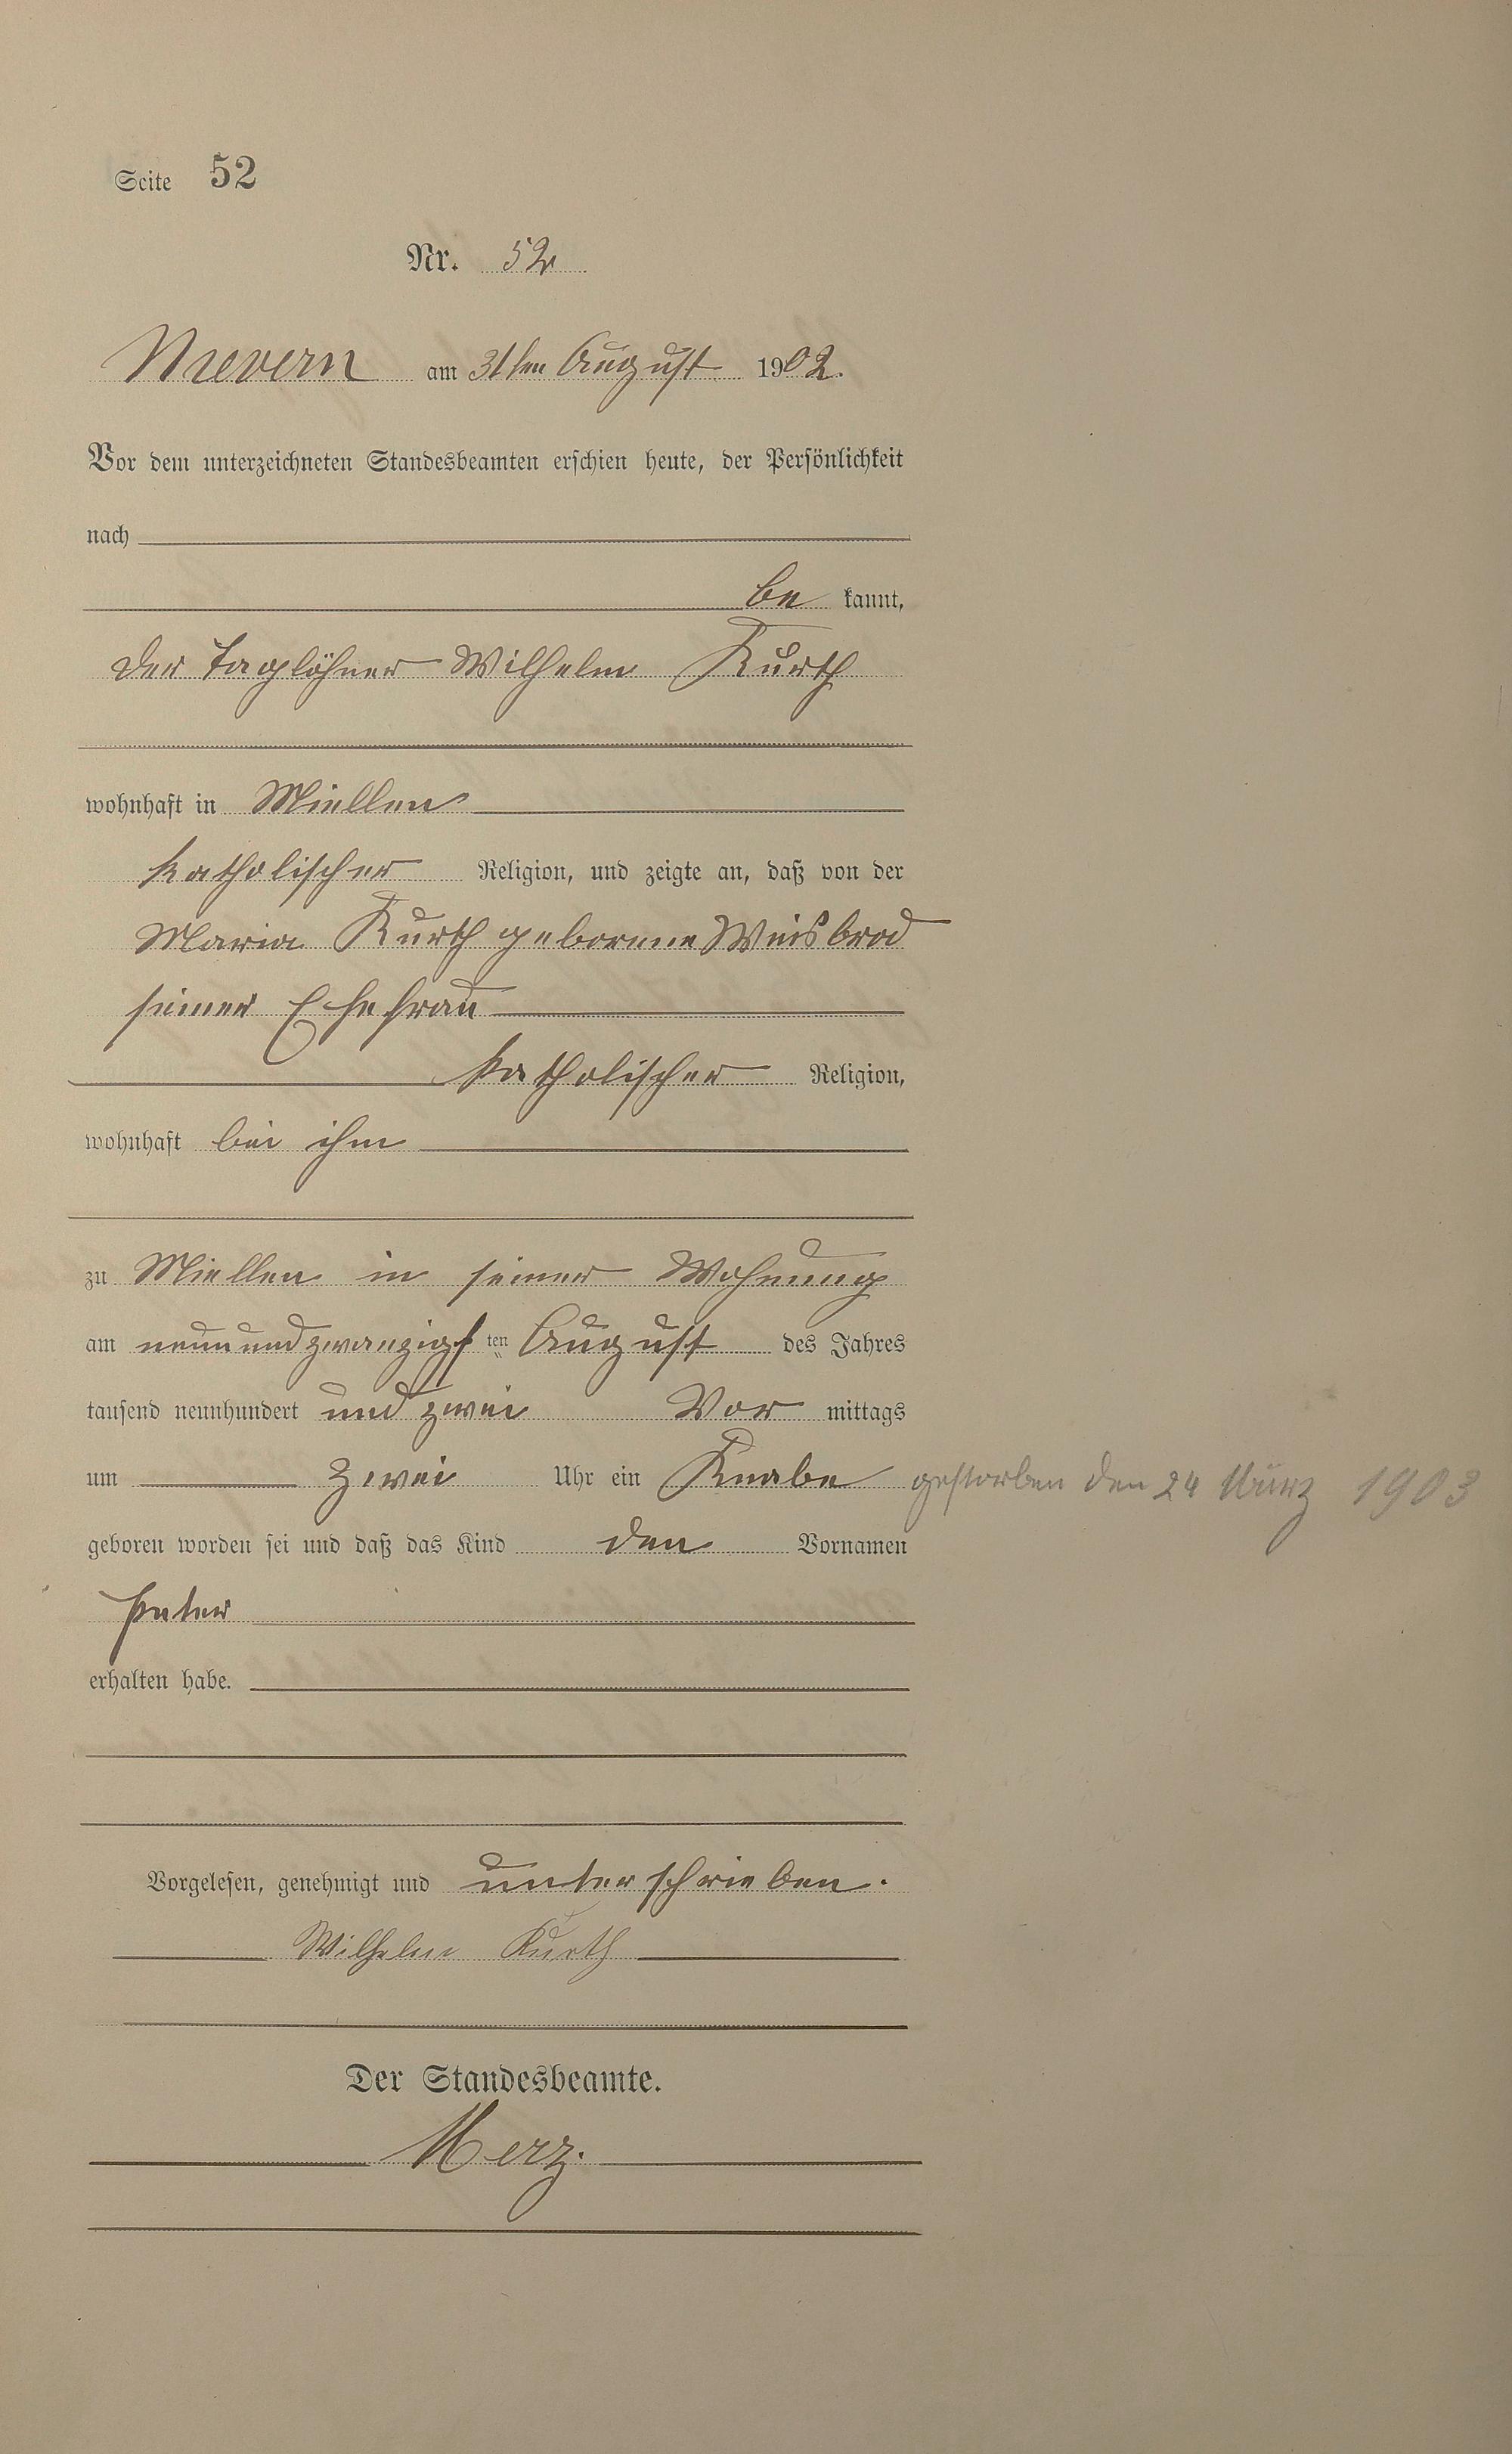 Seite 52
Nr. 52
Nievern am 31ten August 1902.
Vor dem unterzeichneten Standesbeamten erschien heute, der Persönlichkeit
nach
be kannt,
der Taglöhner Wilhelm Kurth
wohnhaft in Miellen
katholischer Religion, und zeigte an, daß von der
Maria Kurth geborene Weisbrod
seiner Ehefrau
katholischer Religion,
wohnhaft bei ihm
zu Miellen in seiner Wohnung
am neunundzwanzigsten August des Jahres
tausend neunhundert und zwei Vor mittags
um zwei Uhr ein Knabe gestorben den 24 März 1903
geboren worden sei und daß das Kind den Vornamen
Peter
erhalten habe.
Vorgelesen, genehmigt und unterschrieben.
Wilhelm Kurth
Der Standesbeamte.
Merz.